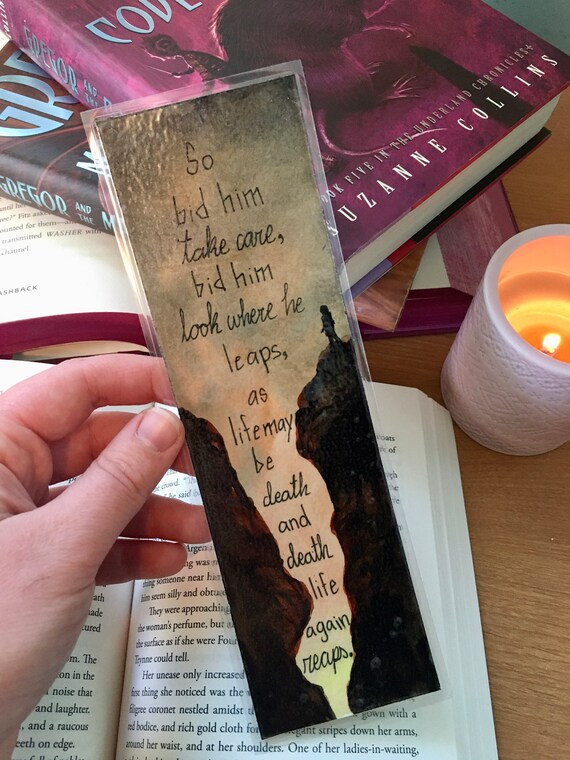 CODE
GREGOR AND THE
BOOK FIVE IN THE UNDERLAND CHRONICLES
SUZANNE COLLINS
GRE
GREGOR AND THE M
?" Fitz
accounted for them—
transmitted WASHER with
channel.
ASHBACK
So
bid him
take care,
bid him
look where he
leaps,
as
life may
be
death
and
death
life
again
reaps.
death
made
The
tion in the
noise that
and laughter.
, and a raucous
eeth on edge.
he said
Argen
thing someone near
him seem silly and
They were approaching
the woman's perfume, but
the surface as if she were Four
Trynne could tell.
Her unease only increased
first thing she noticed was the
filigree coronet nestled amidst
red bodice, and rich gold cloth
around her waist, and at her shoulders. One of her ladies-in-waiting,
gown with a
elegant stripes down her arms,